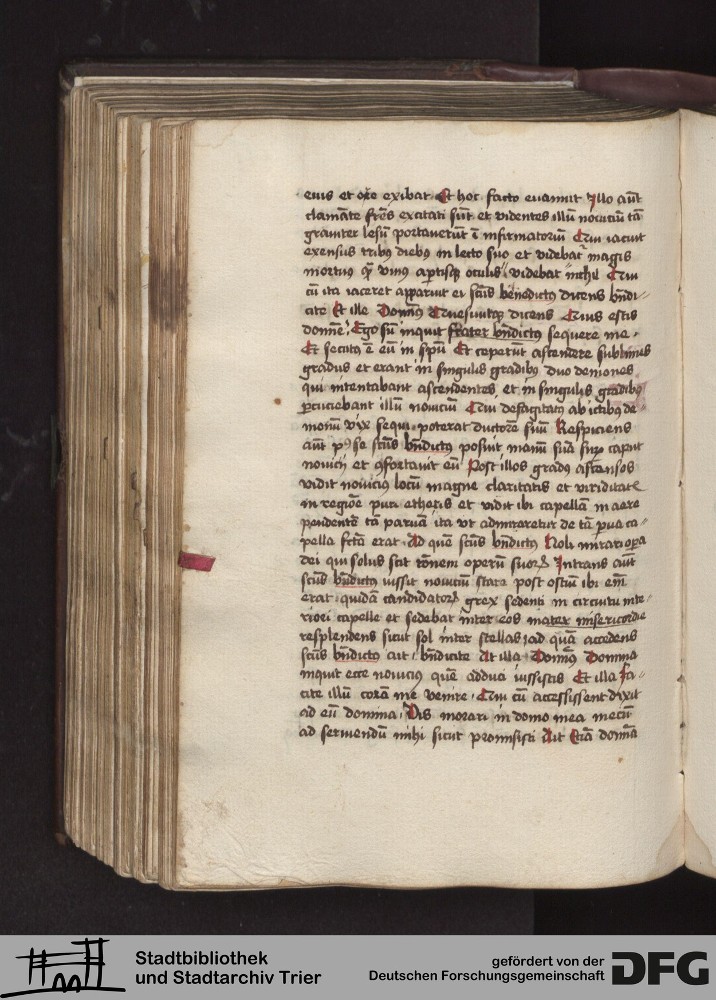 eius et ore exibat Et hoc facto euanuit Illo aūt
clamāte frēs excitati sūt et videntes illū nouiciū tā
grauiter lesū portauerūt ī infirmatoriū Qui iacuit
extensus tribꝰ diebꝰ in lecto suo et videbatᷣ magis
mortuꝰ qᷓ viuus aptisqꝫ oculis videbat nichil Cui
cū ita iaceret apparuit ei scūs benedictꝰ dicens bn̄di-
cite Et ille Domnꝰ dicens Cuius estis
domne Ego sū inquit frater bn̄dictꝰ sequere me
Et secutꝰ ē eū in spū Et ceperūt ascendere sublimes
gradus et erant in singulis gradibꝰ duo demones
qui intentabant ascendentes et in singulis gradibꝰ
ꝑcuciebant illū nouiciū Qui defatigatus ab ictibꝰ de-
monū vix sequi poterat ductorē suū Respiciens
aūt pꝰ se scūs bn̄dictꝰ posuit manū suā suꝑ caput
nouicii et ꝯfortauit eū Post illos gradꝰ ascensos
vidit nouiciꝰ locū magne claritatis et viriditatis
in regiōe puri etheris et vidit ibi capellā in aere
pendentē tā paruā ita vt admiraretur de tā ꝑua ca-
pella fctā erat Ad quē scūs bn̄dictꝰ Noli mirari oꝑa
dei qui solus scit rōnem operū suorꝝ Intrans aūt
scūs bn̄dictꝰ iussit nouiciū stare post ostiū ibi em̄
erat quidā candidatorꝝ grex sedenti in circuitu inte-
riori capelle et sedebat inter eos mater misericordie
resplendens sicut sol inter stellas ad quā accedens
scūs bn̄dictꝰ ait bn̄dicite At illa Domnꝰ Domina
inquit ecce nouiciꝰ quē adduci iussistis Et illa fa-
cite illū corā me venire Qui cū accessissent dixit
ad eū domina Vis morari in domo mea mecū
ad seruiendū mihi sicut promisisti Ait Etiā domīa
Stadtbibliothek
und Stadtarchiv Trier
gefördert von der
Deutschen Forschungsgemeinschaft
DFG